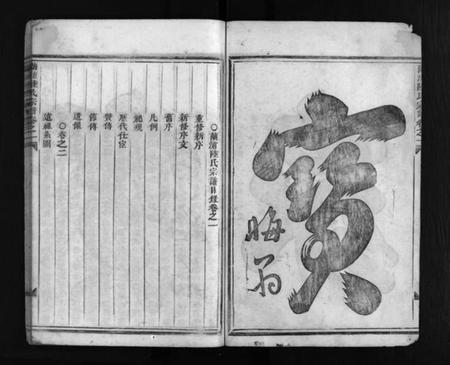 寶
晦翁
○蘭浦陸氏宗譜目錄卷之一
重修新序
新修序文
舊序
凡例
祠規
歷代仕宦
贊傳
舊傳
遺像
○卷之二
遠祖系圖